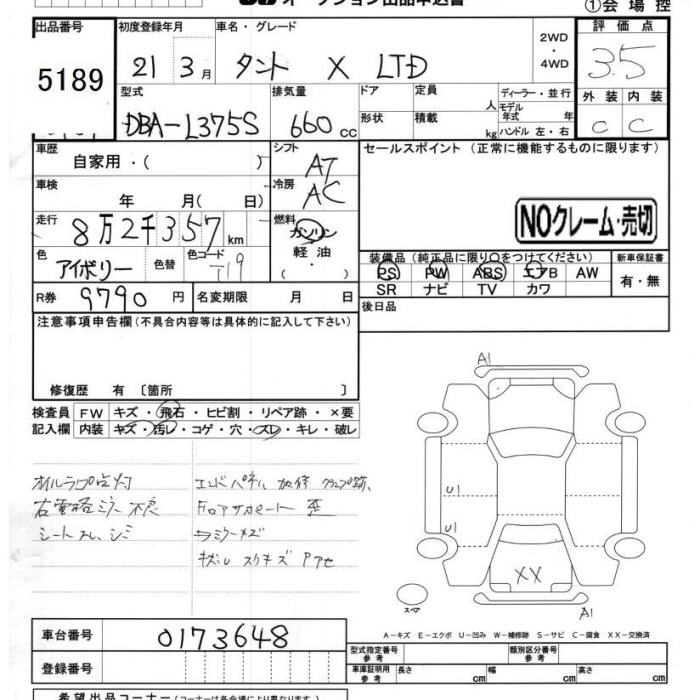 オークション出品申込書
①会場控
出品番号 初度登録年月 車名・グレード 2WD・4WD 評価点
5189 21 3月 タント X LTD 3.5
型式 排気量 ドア 定員 人 ディーラー・並行 外装 内装
DBA-L375S 660cc 形状 積載 kg モデル年式 年 ハンドル 左・右 C C
車歴 自家用・( ) シフト AT セールスポイント (正常に機能するものに限ります)
車検 年 月( 日) 冷房 AC
NOクレーム・売切
走行 8万2千357km 燃料 ガソリン
軽油・
装備品 (純正品に限り○をつけてください) 新車保証書
色 アイボリー 色替 色コード T19 PS PW ABS エアB AW 有・無
SR ナビ TV カワ
R券 9790円 名変期限 月 日 後日品
注意事項申告欄 (不具合内容等は具体的に記入して下さい)
修復歴 有 〔箇所 〕
検査員 FW キズ・飛石・ヒビ割・リペア跡・×要
記入欄 内装 キズ・汚レ・コゲ・穴・スレ・キレ・破レ
オイルランプ点灯
右電格ミラー不良
シートスレ、シミ
エンドパネル 加修 クランプ跡、
Fロアサポート 歪
ミラーキズ
スリキズ
A1
U1
U1
XX
スペア
A1
A-キズ E-エクボ U-凹み W-補修跡 S-サビ C-腐食 XX-交換済
車台番号 0173648
登録番号
型式指定番号 参考 類別区分番号 参考
車庫証明用 参考 長さ cm 幅 cm 高さ cm
希望出品コーナー (コーナーは各会場により異なります。)